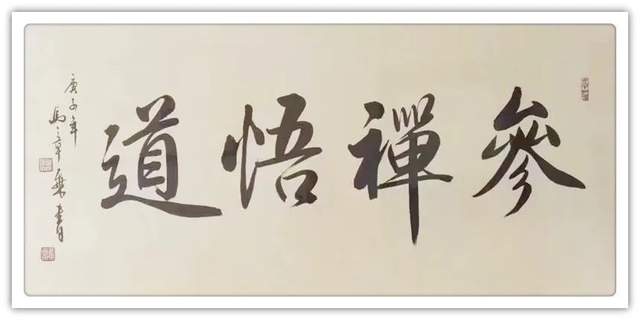 參禪悟道
庚子年
馬章乘書